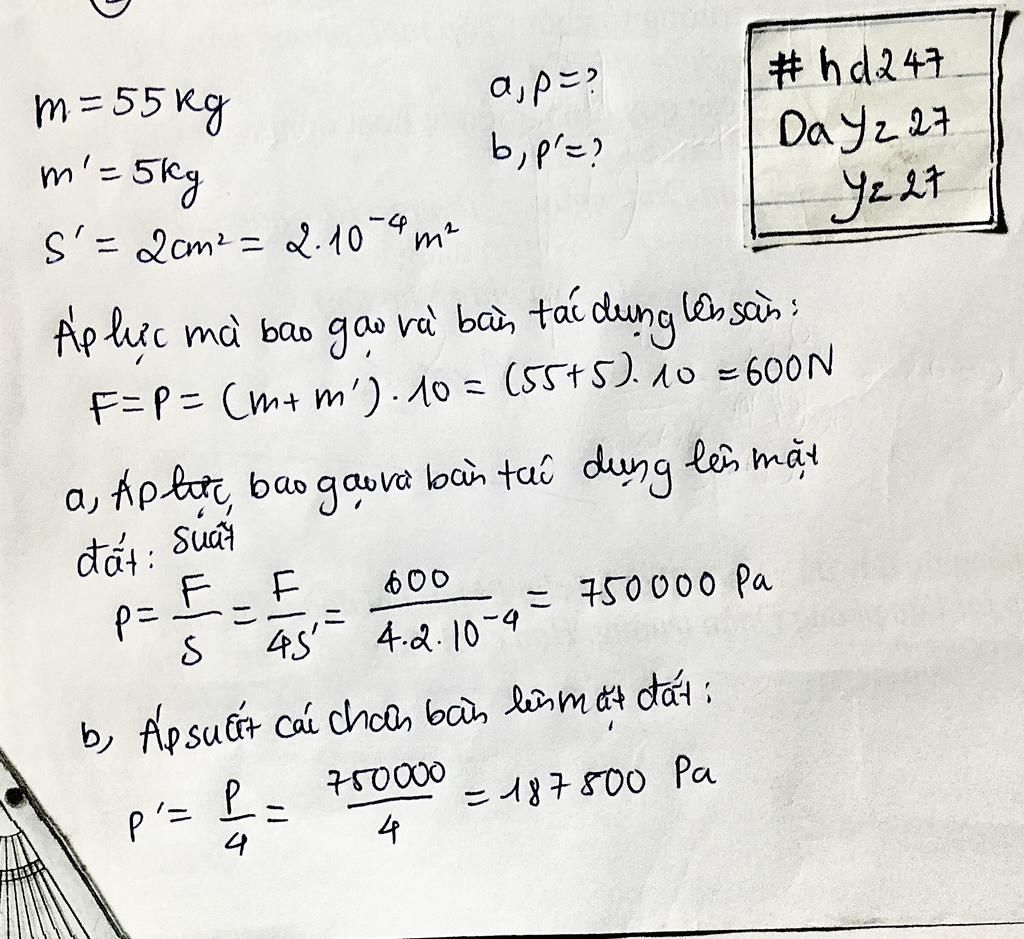 m = 55 kg
a, p = ?
m' = 5kg
b, p' = ?
S' = 2cm² = 2.10⁻⁴ m²
# hd247
Da Yz 27
Yz 27
Áp lực mà bao gạo và bàn tác dụng lên sàn:
F = P = (m + m') . 10 = (55+5). 10 = 600N
a, Áp lực, bao gạo và bàn tác dụng lên mặt
đất: suất
p = F/S = F/4S' = 600/4.2.10⁻⁴ = 750000 Pa
b, Áp suất cái chân bàn lên mặt đất:
p' = p/4 = 750000/4 = 187500 Pa